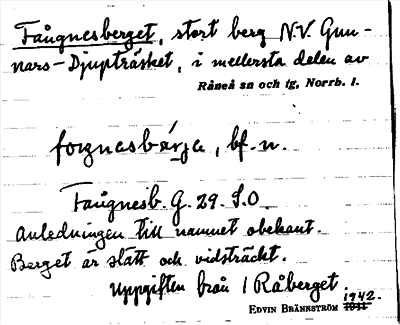 Faŭgnesberget, stort berg N.V. Gun-
nars-Djupträsket, i mellersta delen av
Råneå sn och tg, Norrb. l.
bf. n.
Faŭgnesb. G. 29. S.O.
Anledningen till namnet obekant.
Berget är slätt och vidsträckt.
Uppgiften från 1 Råberget.
EDVIN BRÄNNSTRÖM 1942.